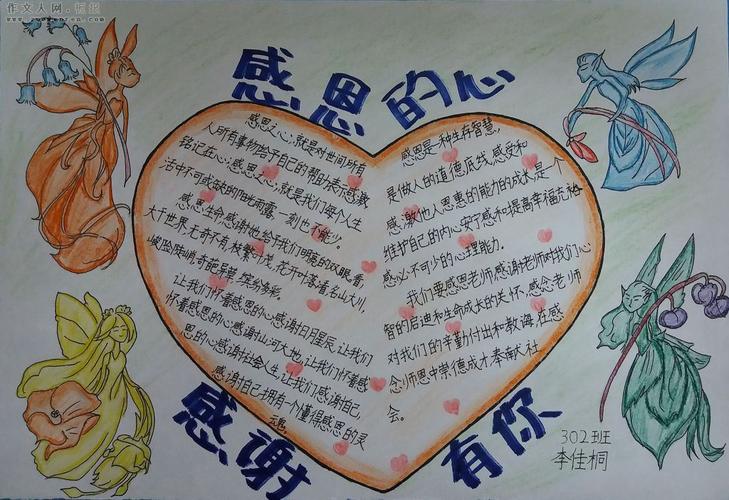 作文人网·恒起
www.zuowenren.com
感恩的心
感恩之心,就是对世间所有
人所有事物给予自己的帮助表示感激,
铭记在心;感恩之心,就是我们每个人生
活中不可或缺的阳光雨露,一刻也不能少。
感恩生命感谢她给予我们明亮的双眼看,
大千世界,无奇不有,枝繁叶茂,花开叶落看名山大川,
峻险陡峭,奇葩异草,缤纷多彩。
让我们怀着感恩的心感谢日月星辰,让我们
怀着感恩的心感谢山河大地,让我们怀着感
恩的心感谢社会人生,让我们感谢自己,
感谢自己拥有一个懂得感恩的灵
魂。
感恩是一种生存智慧,
是做人的道德底线,感受和
感激他人恩惠的能力的成长,是个
维护自己的内心安宁感和提高幸福充裕
感必不可少的心理能力。
我们要感恩老师,感谢老师对我们心
智的启迪和生命成长的关怀,感念老师
对我们的辛勤付出和教诲,在感
念师恩中崇德成才奉献社
会。
感谢
有你
302班
李佳桐